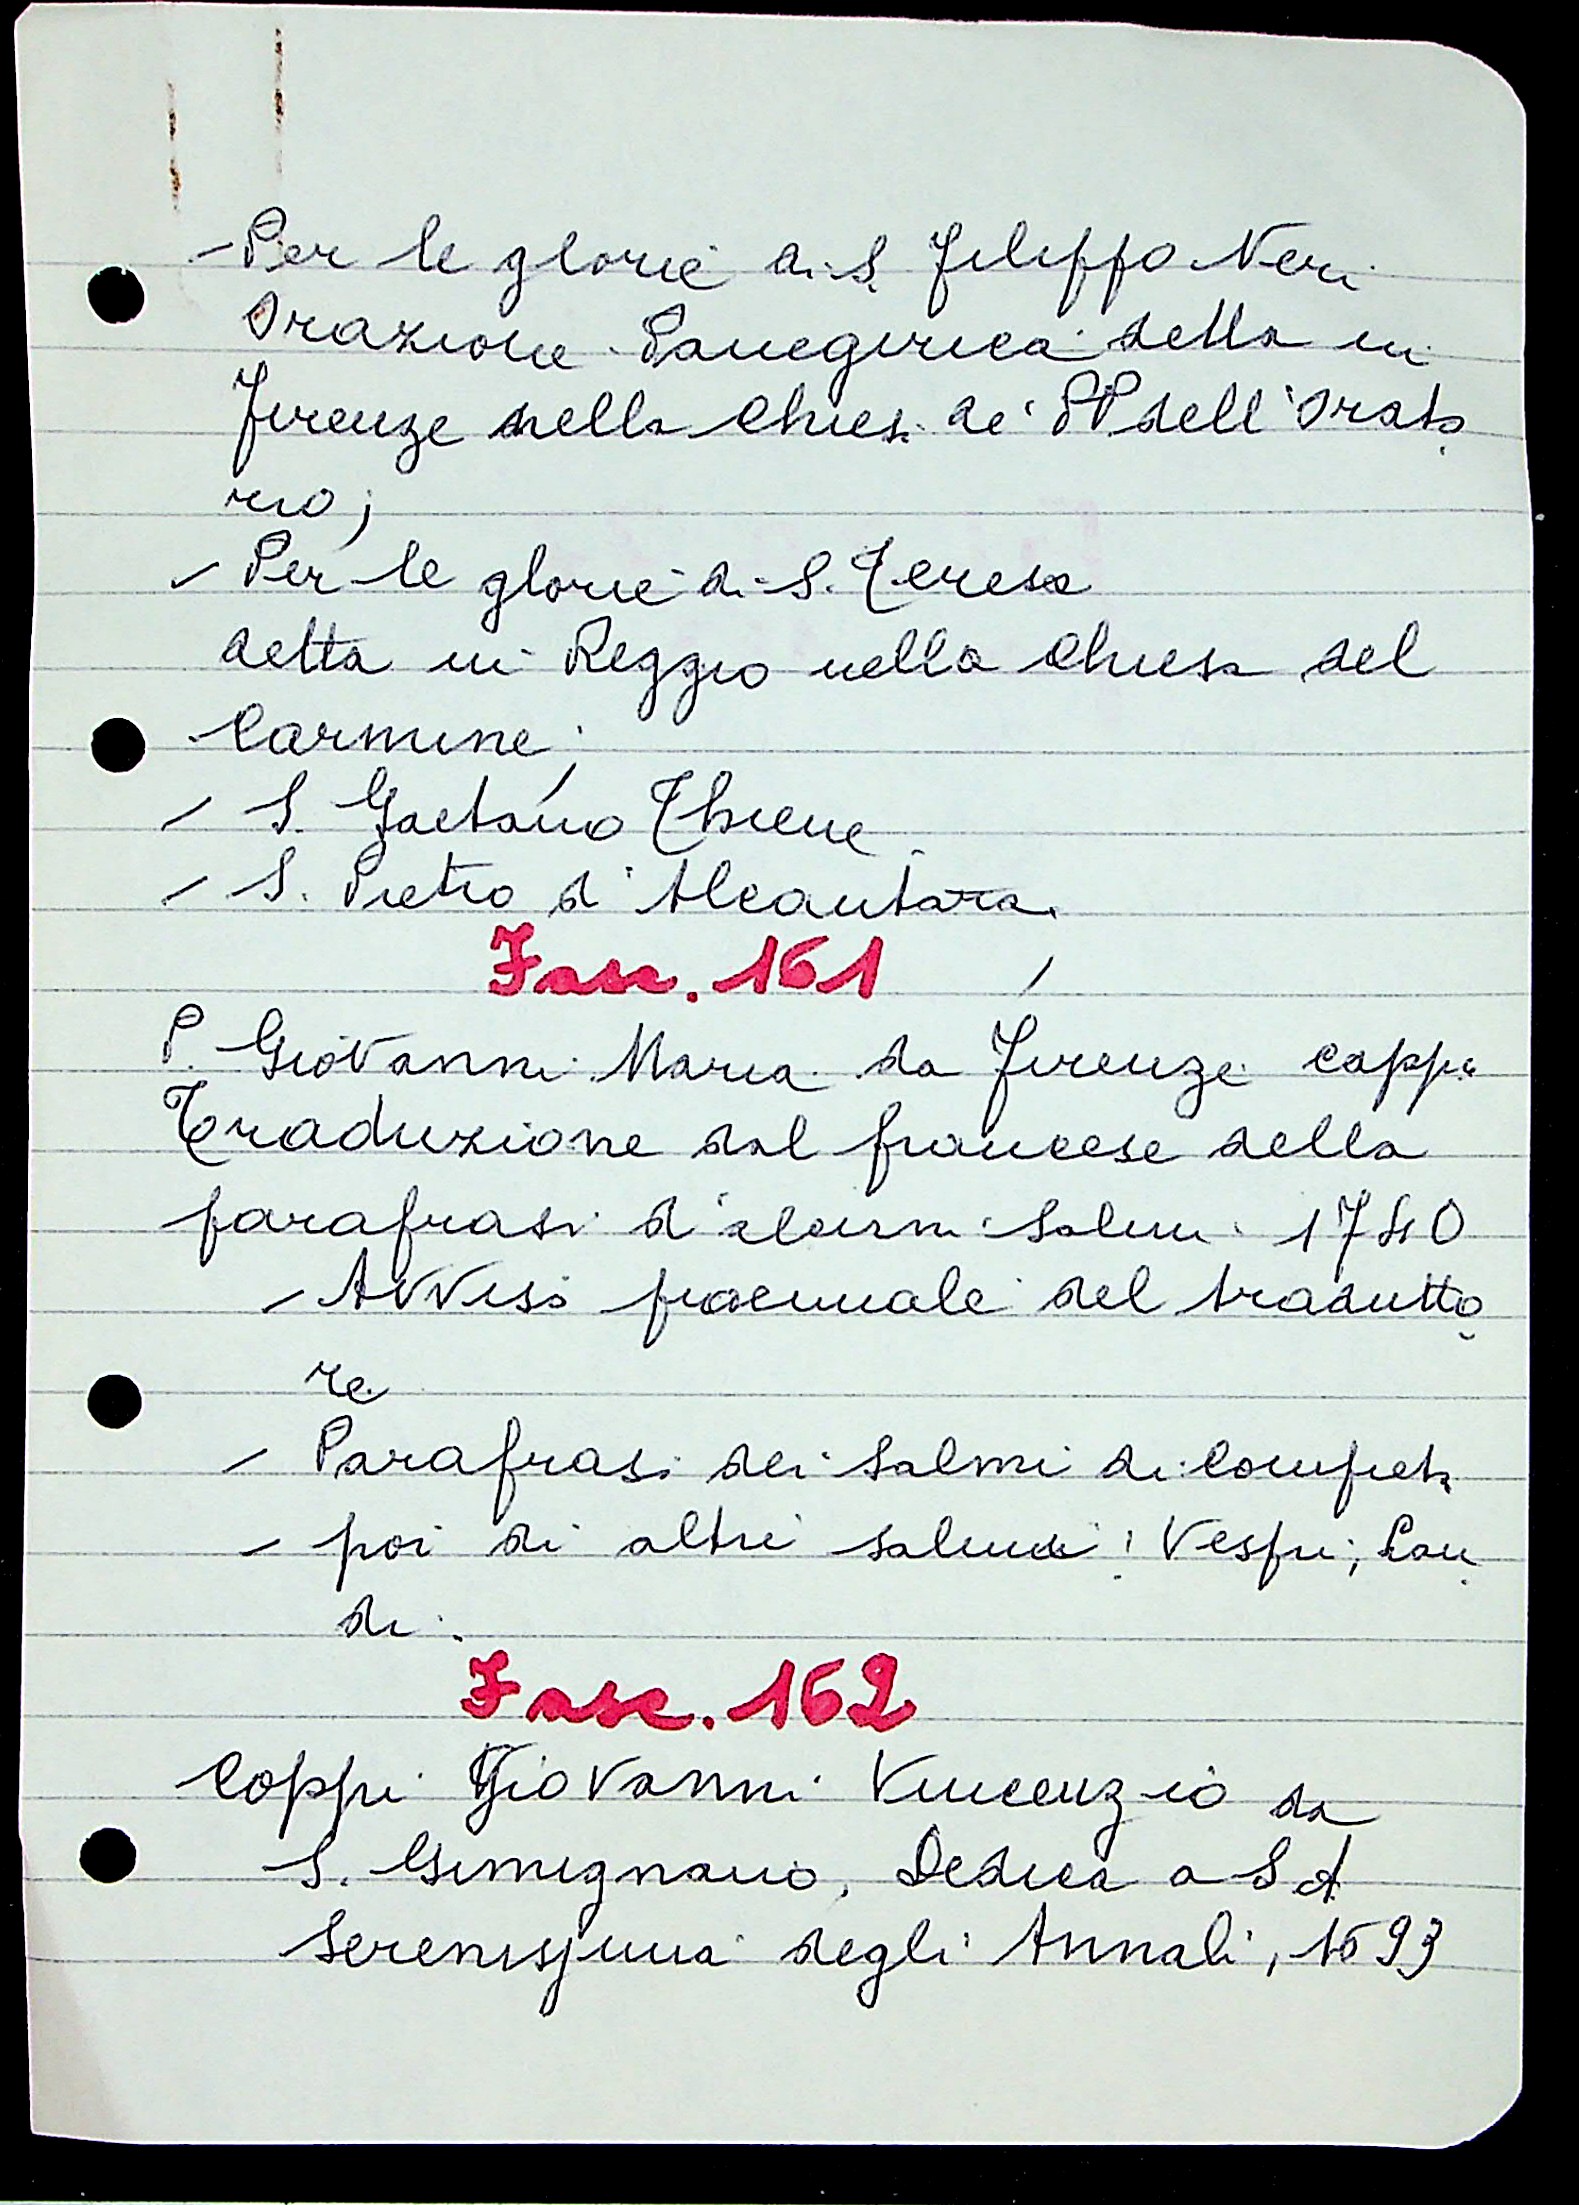 - Per le glorie di S. Filippo Neri
Orazione Panegirica detta in
Firenze nella Chiesa de' PP dell'Orato
rio;
- Per le glorie di S. Teresa
detta in Reggio nella Chiesa del
Carmine;
- S. Gaetano Thiene
- S. Pietro d'Alcantara.
Fasc. 161
P. Giovanni Maria da Firenze capp.
Traduzione dal francese della
parafrasi d'alcuni salmi 1740
- Avviso proemiale del tradutto
re
- Parafrasi dei salmi di Compieta
- poi di altri salmi: Vespri; Lau
di.
Fasc. 162
Coppi Giovanni Vincenzio da
S. Gimignano, Dedica a S A
Serenissima degli Annali, 1693